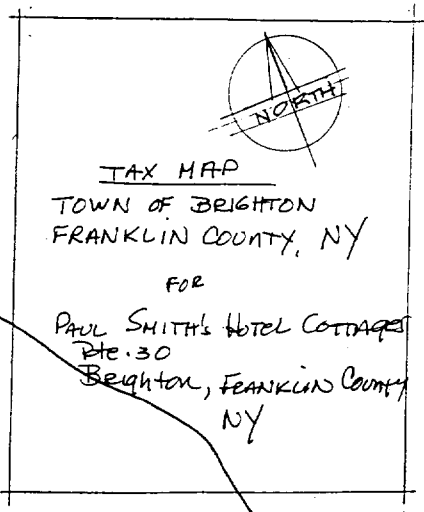 NORTH
TAX MAP
TOWN OF BRIGHTON
FRANKLIN COUNTY, NY
FOR
PAUL SMITH's HOTEL COTTAGES
Rte. 30
Brighton, FRANKLIN County
NY